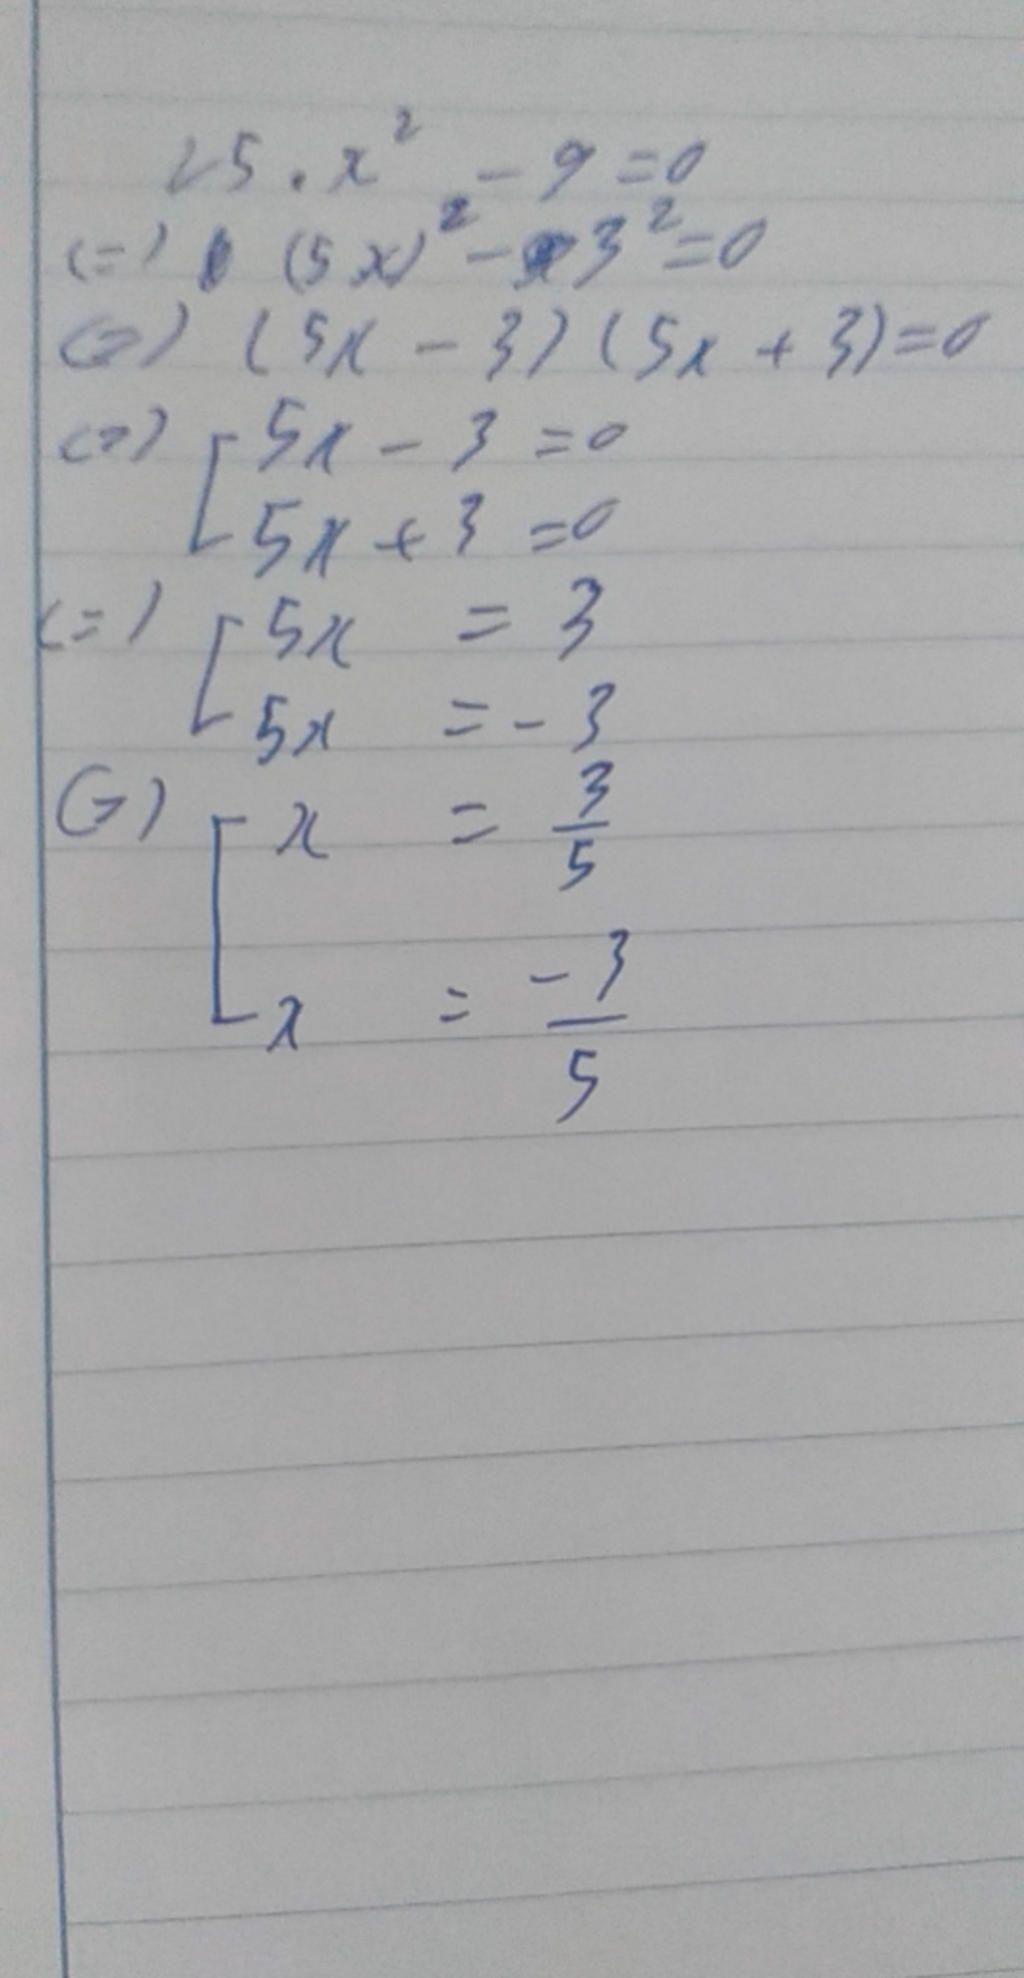 25 . x² - 9 = 0
<=> (5x)² - 3² = 0
<=> (5x - 3) (5x + 3) = 0
<=> [ 5x - 3 = 0
5x + 3 = 0
<=> [ 5x = 3
5x = -3
<=> [ x = 3/5
x = -3/5